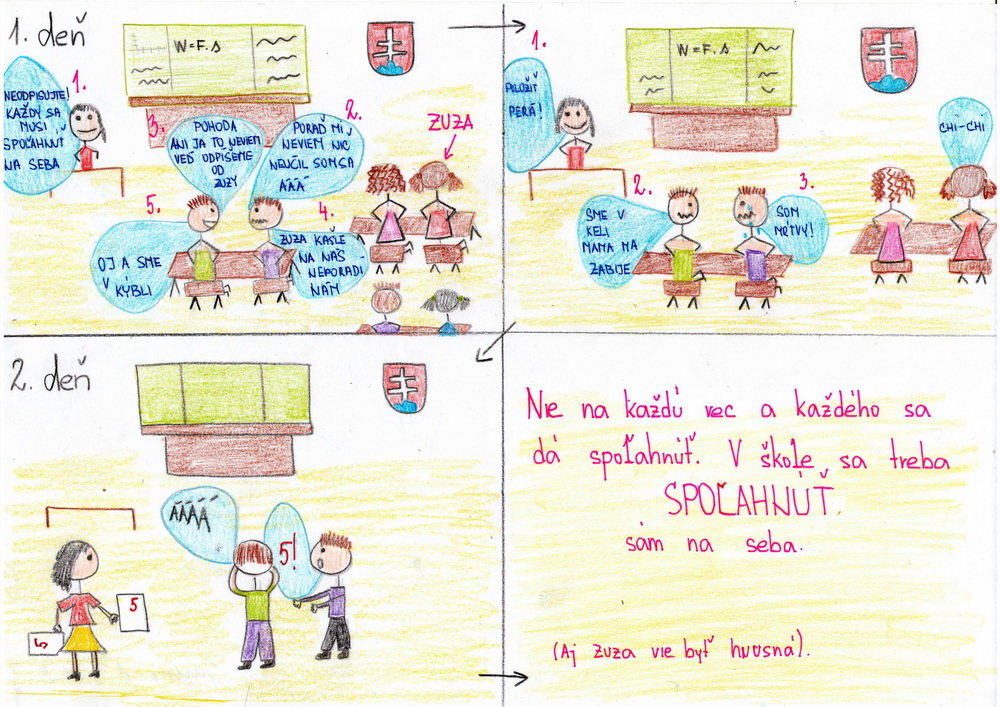 1. deň
W=F.s
1.
NEODPISUJTE!
KAŽDÝ SA
MUSÍ
SPOĽAHNÚŤ
NA SEBA
2.
PORAĎ MI
NEVIEM NIČ
NEUČIL SOM SA
ÁÁÁ
3.
POHODA
ANI JA TO NEVIEM
VEĎ ODPÍŠEME
OD
ZUZY
ZUZA
4.
ZUZA KAŠLE
NA NÁS
NEPORADÍ
NÁM
5.
OJ A SME
V
KÝBLI
W=F.s
1.
POLOŽIŤ
PERÁ!
2.
SME V
KELI
MAMA MA
ZABIJE
3.
SOM
MŔTVY!
CHI-CHI
2. deň
ÁÁÁÁ
5!
5
5
Nie na každú vec a každého sa
dá spoľahnúť. V škole sa treba
SPOĽAHNÚŤ
sám na seba.
(Aj Zuza vie byť hnusná).